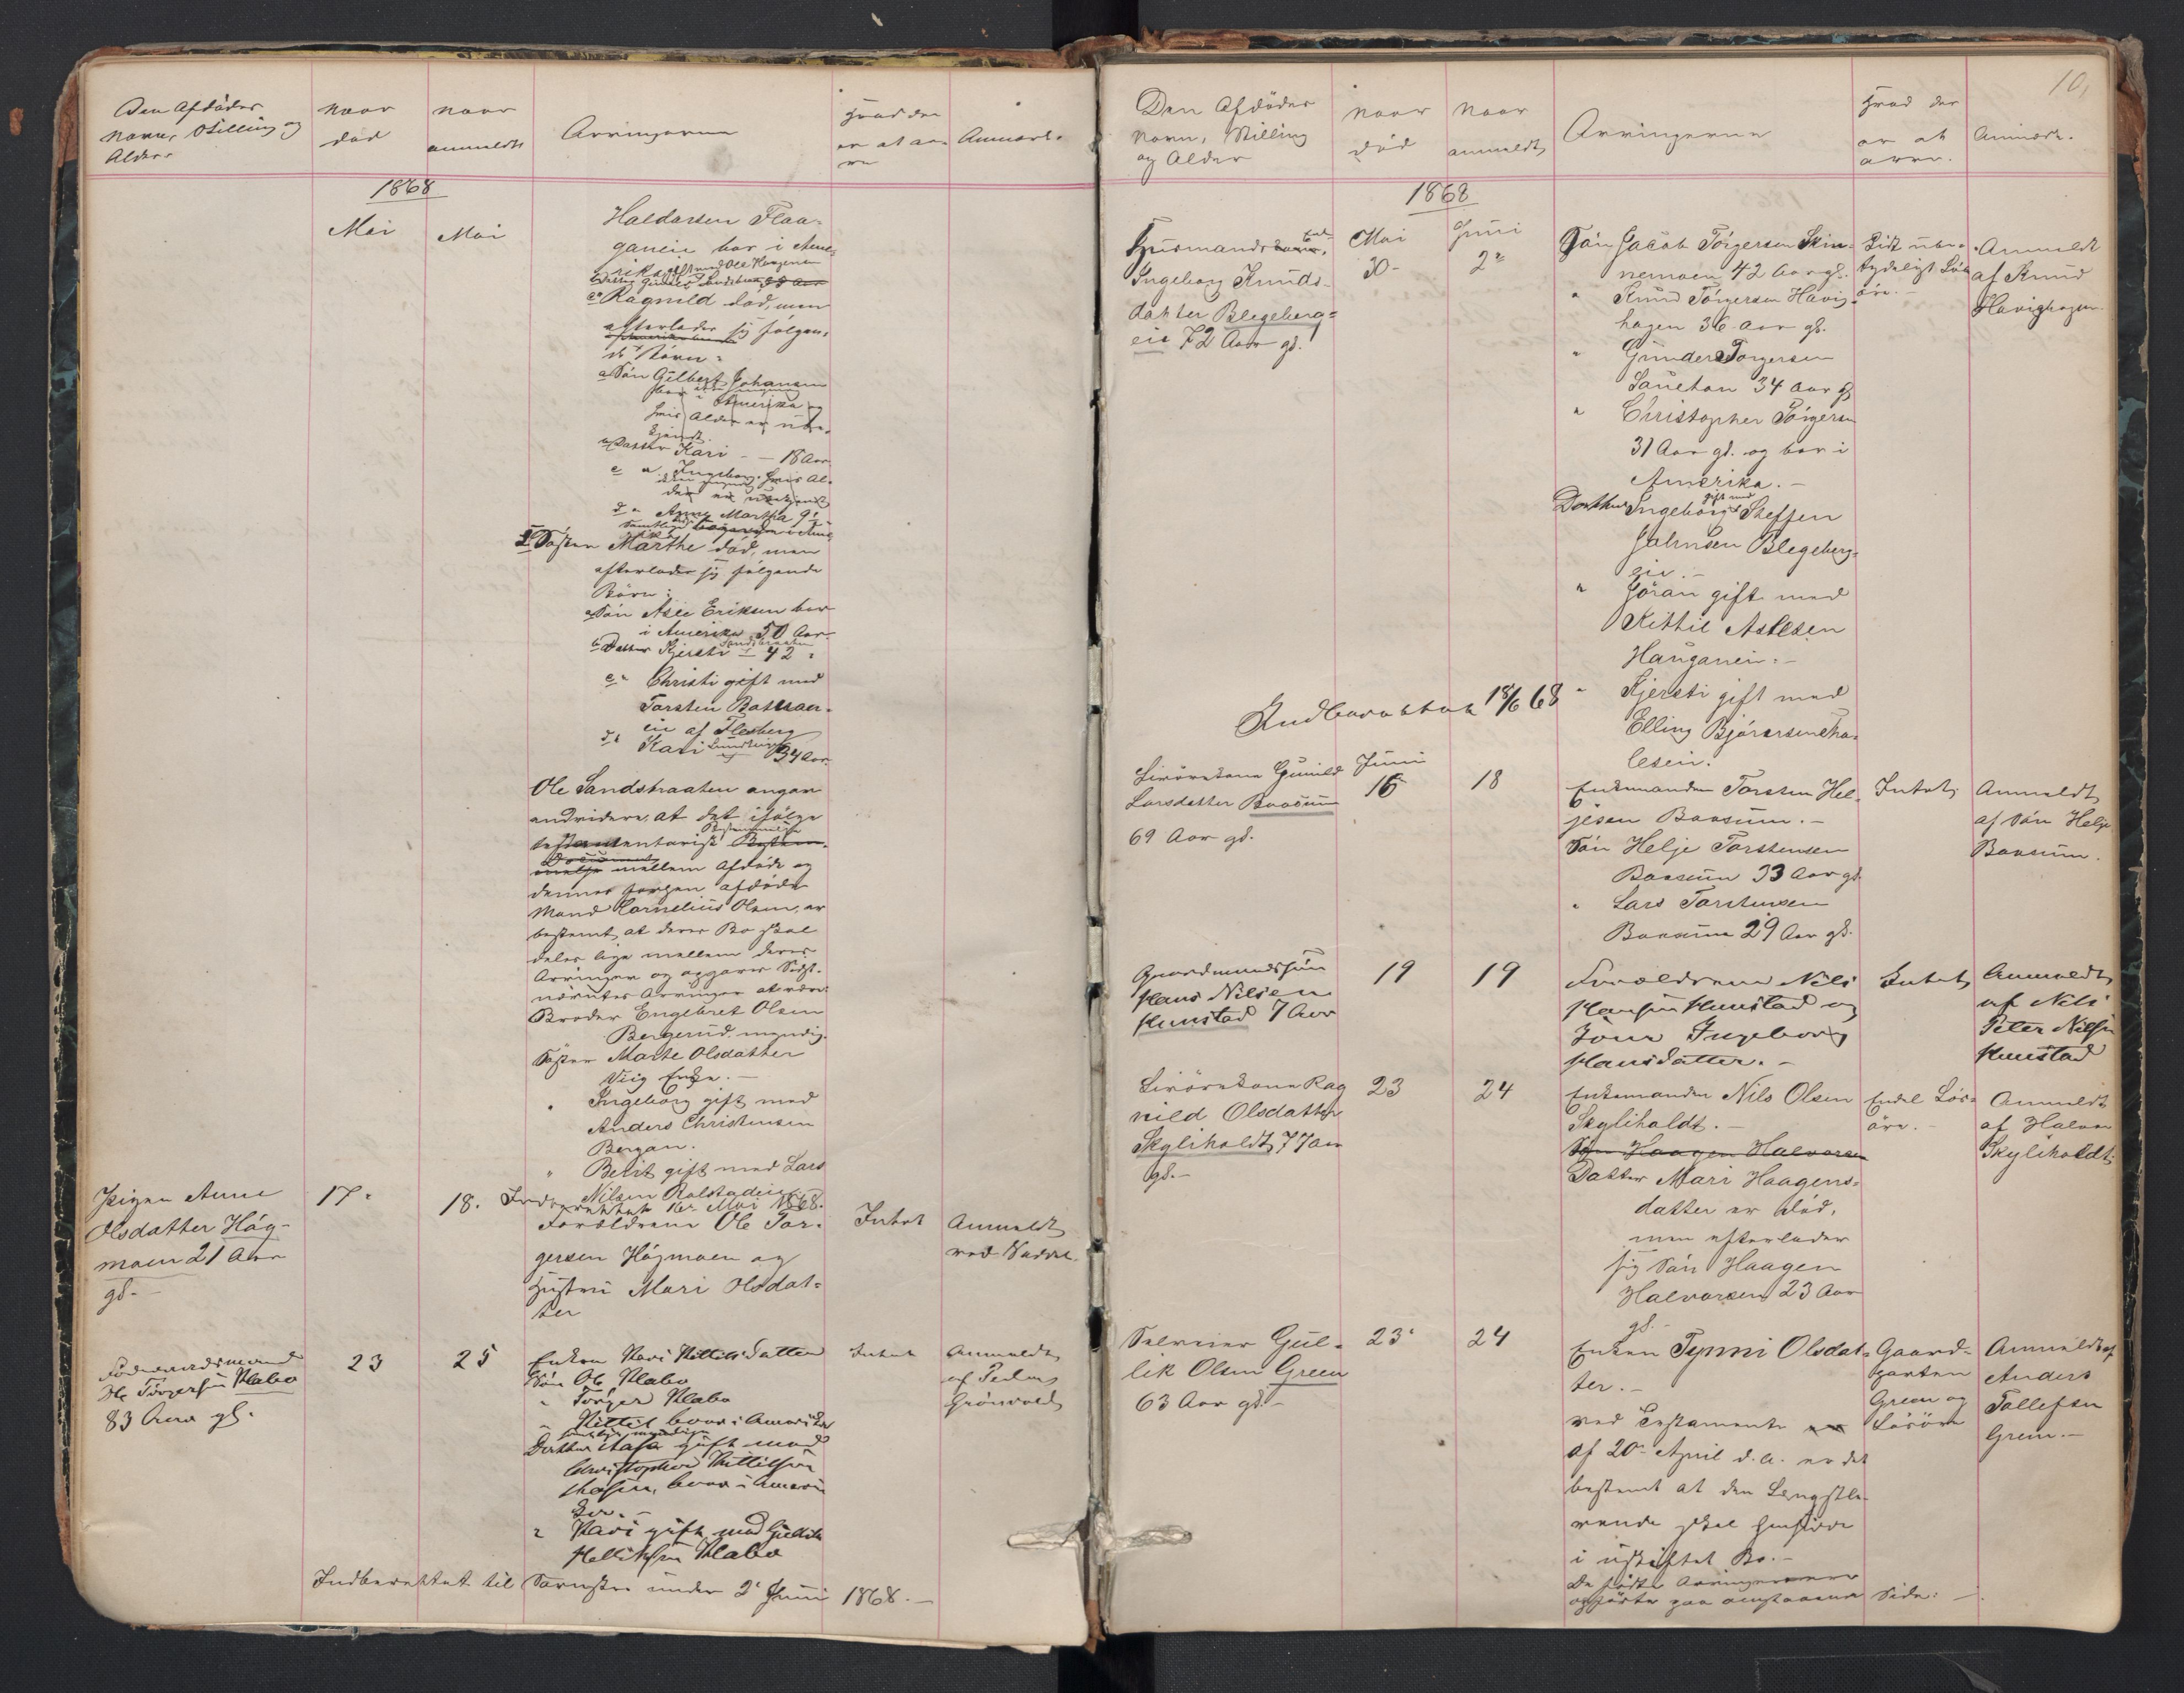 Den Afdødes
Navn, Stilling og
Alder
Naar
død
Naar
anmeldt
Arvingerne
Hvad der
er at ar-
ve
Anmærk.
1868
Mai
Mai
Haldorsen Flaa-
ganeie bor i Ame-
rika
Ragnild død, men
efterlader sig følgen-
de Børn:
a Søn Gilbert Johansen
bor i Amerika og
hvis Alder er ube-
kjendt.
b Datter Kari - - 18 Aar
c " Ingeborg, hvis Al-
der er ubekjendt
d " Anne Martha 9½
Søster Marthe død, men
efterlader sig følgende
Børn:
a Søn Asle Eriksen bor
i Amerika 50 Aar
b Datter Kjersti 42 "
c " Christi gift med
Torsten
eie af Flesberg
d " Kari 34 Aar
Ole Sandstraaten angav
endvidere, at det ifølge
testamentarisk Bestemmelse
mellem Afdøde og
dennes forhen afdøde
Mand Cornelius Olsen, er
bestemt, at deres Bo skal
deles lige mellem deres
Arvinger og opgaves Sidst-
nævntes Arvinger at være:
Broder Engebret Olsen
Bergerud myndig.
Søster Marte Olsdatter
Viig Enke. -
" Ingeborg gift med
Anders Christensen
Bergan.
" Berit gift med Lars
Nilsen Rolstadeie
Indberettet 18 Mai 1868.
Pigen Anne
Olsdatter Høg-
moen 21 Aar
gl. -
17.
18.
Forældrene Ole Tor-
gersen Høgmoen og
Hustru Mari Olsdat-
ter
Intet
Anmeldt
ved Faderen.
Føderaadsmand
Ole Torgersen Klabo
83 Aar gl.
23
25
Enken Kari Kittilsdatter
Søn Ole Klabo
" Torger Klabo
" Kittil boer i Amerika
samtlige myndige
Datter Aase gift med
Christopher Kittilsen
boer i Ameri-
ka. -
" Kari gift med Gullik
Helliksen Klabo
Intet
Anmeldt
af Peder
Grønvold
Indberettet til Sorenskr. under 2 Juni 1868. -
10,
Den Afdødes
Navn, Stilling
og Alder
Naar
død
Naar
anmeldt
Arvingerne
Hvad der
er at
arve.
Anmærk.
1868
Husmands
Ingeborg Knuds-
datter Blegeberg-
eie 72 Aar gl.
Mai
30-
Juni
2
Søn Jacob Torgersen Skin-
nemoen 42 Aar gl.
" Knud Torgersen Havig-
hagen 36 Aar gl.
" Gunder Torgersen
Sauetøn 34 Aar gl
" Christopher Torgersen
31 Aar gl. og bor i
Amerika. -
Datter Ingeborg gift med Steffen
Johnsen Blegeberg-
eie. -
" Jøran gift med
Kittil Astesen
Hauganeie. -
" Kjersti gift med
Elling Bjørersen
leseie.
Lidt ube-
tydeligt Løs-
øre. -
Anmeldt
af Knud
Havighagen.
Indberettet 18/6 68
Livørekone Gunild
Larsdatter Baasum
69 Aar gl.
Juni
16
18
Enkemanden Torsten Hel-
jesen Baasum. -
Søn Helje Torstensen
Baasum 33 Aar gl.
" Lars Torstensen
Baasum 29 Aar gl.
Intet
Anmeldt
af Søn Helje
Baasum.
Gaardmandssøn
Hans Nilsen
Kunstad 7 Aar
19
19
Forældrene Nils
Hansen Kunstad og
Kone Ingeborg
Hansdatter. -
Intet
Anmeldt
af Nils
Peter Nilsen
Kunstad
Livørekone Rag
nild Olsdatter
Skyliholdt 77 Aar
gl. -
23
24
Enkemanden Nils Olsen
Skyliholdt. -
Søn Haagen Halvorsen
Datter Mari Haagens-
datter er død,
men efterlader
sig Søn Haagen
Halvorsen 23 Aar
gl. -
Endel Løs-
øre. -
Anmeldt
af Halvor
Skyliholdt
Selveier Gul-
lek Olsen Green
63 Aar gl. -
23
24
Enken Tynni Olsdat-
ter. -
ved Testamente
af 20 April d.A. er det
bestemt at den Længstle-
vende skal hensidde
i uskiftet Bo. -
De fødte Arvinger
opføres paa omstaaende Side: -
Gaard-
parten
Green og
Løsøre
Anmeldt af
Anders
Tollefsen
Green. -